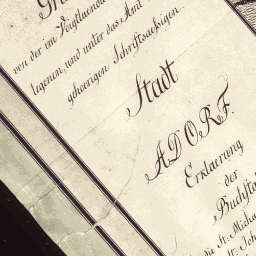 von der im Voigtlaende
legenen, und unter das Amt
gehoerigen Schriftsaessigen
Stadt
ADORF.
Erklaerung
der
Buchsta
die St: Micha